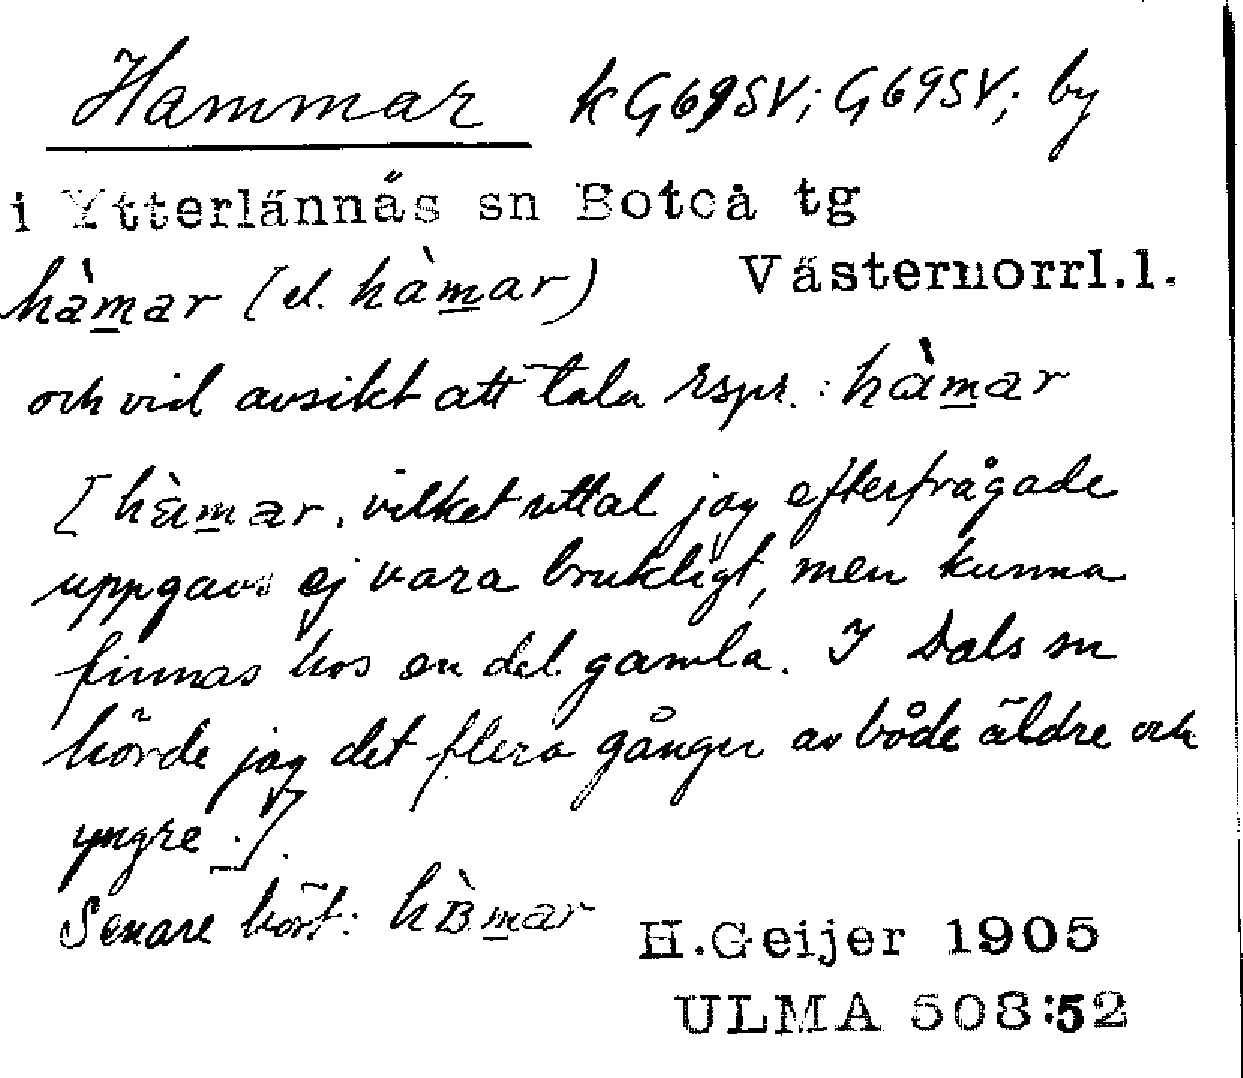 Hammar kG69SV; G69SV; by
i Ytterlännäs sn Boteå tg
hàmar (el. hàmar) Västernorrl.l.
och vid avsikt att tala rspr.: hàmar
[hàmar, vilket uttal jag efterfrågade
uppgavs ej vara brukligt, men kunna
finnas hos en del gamla. I Dals sn
hörde jag det flera gånger av både äldre och
yngre.].
Senare hört: hàmar
H.Geijer 1905
ULMA 508:52